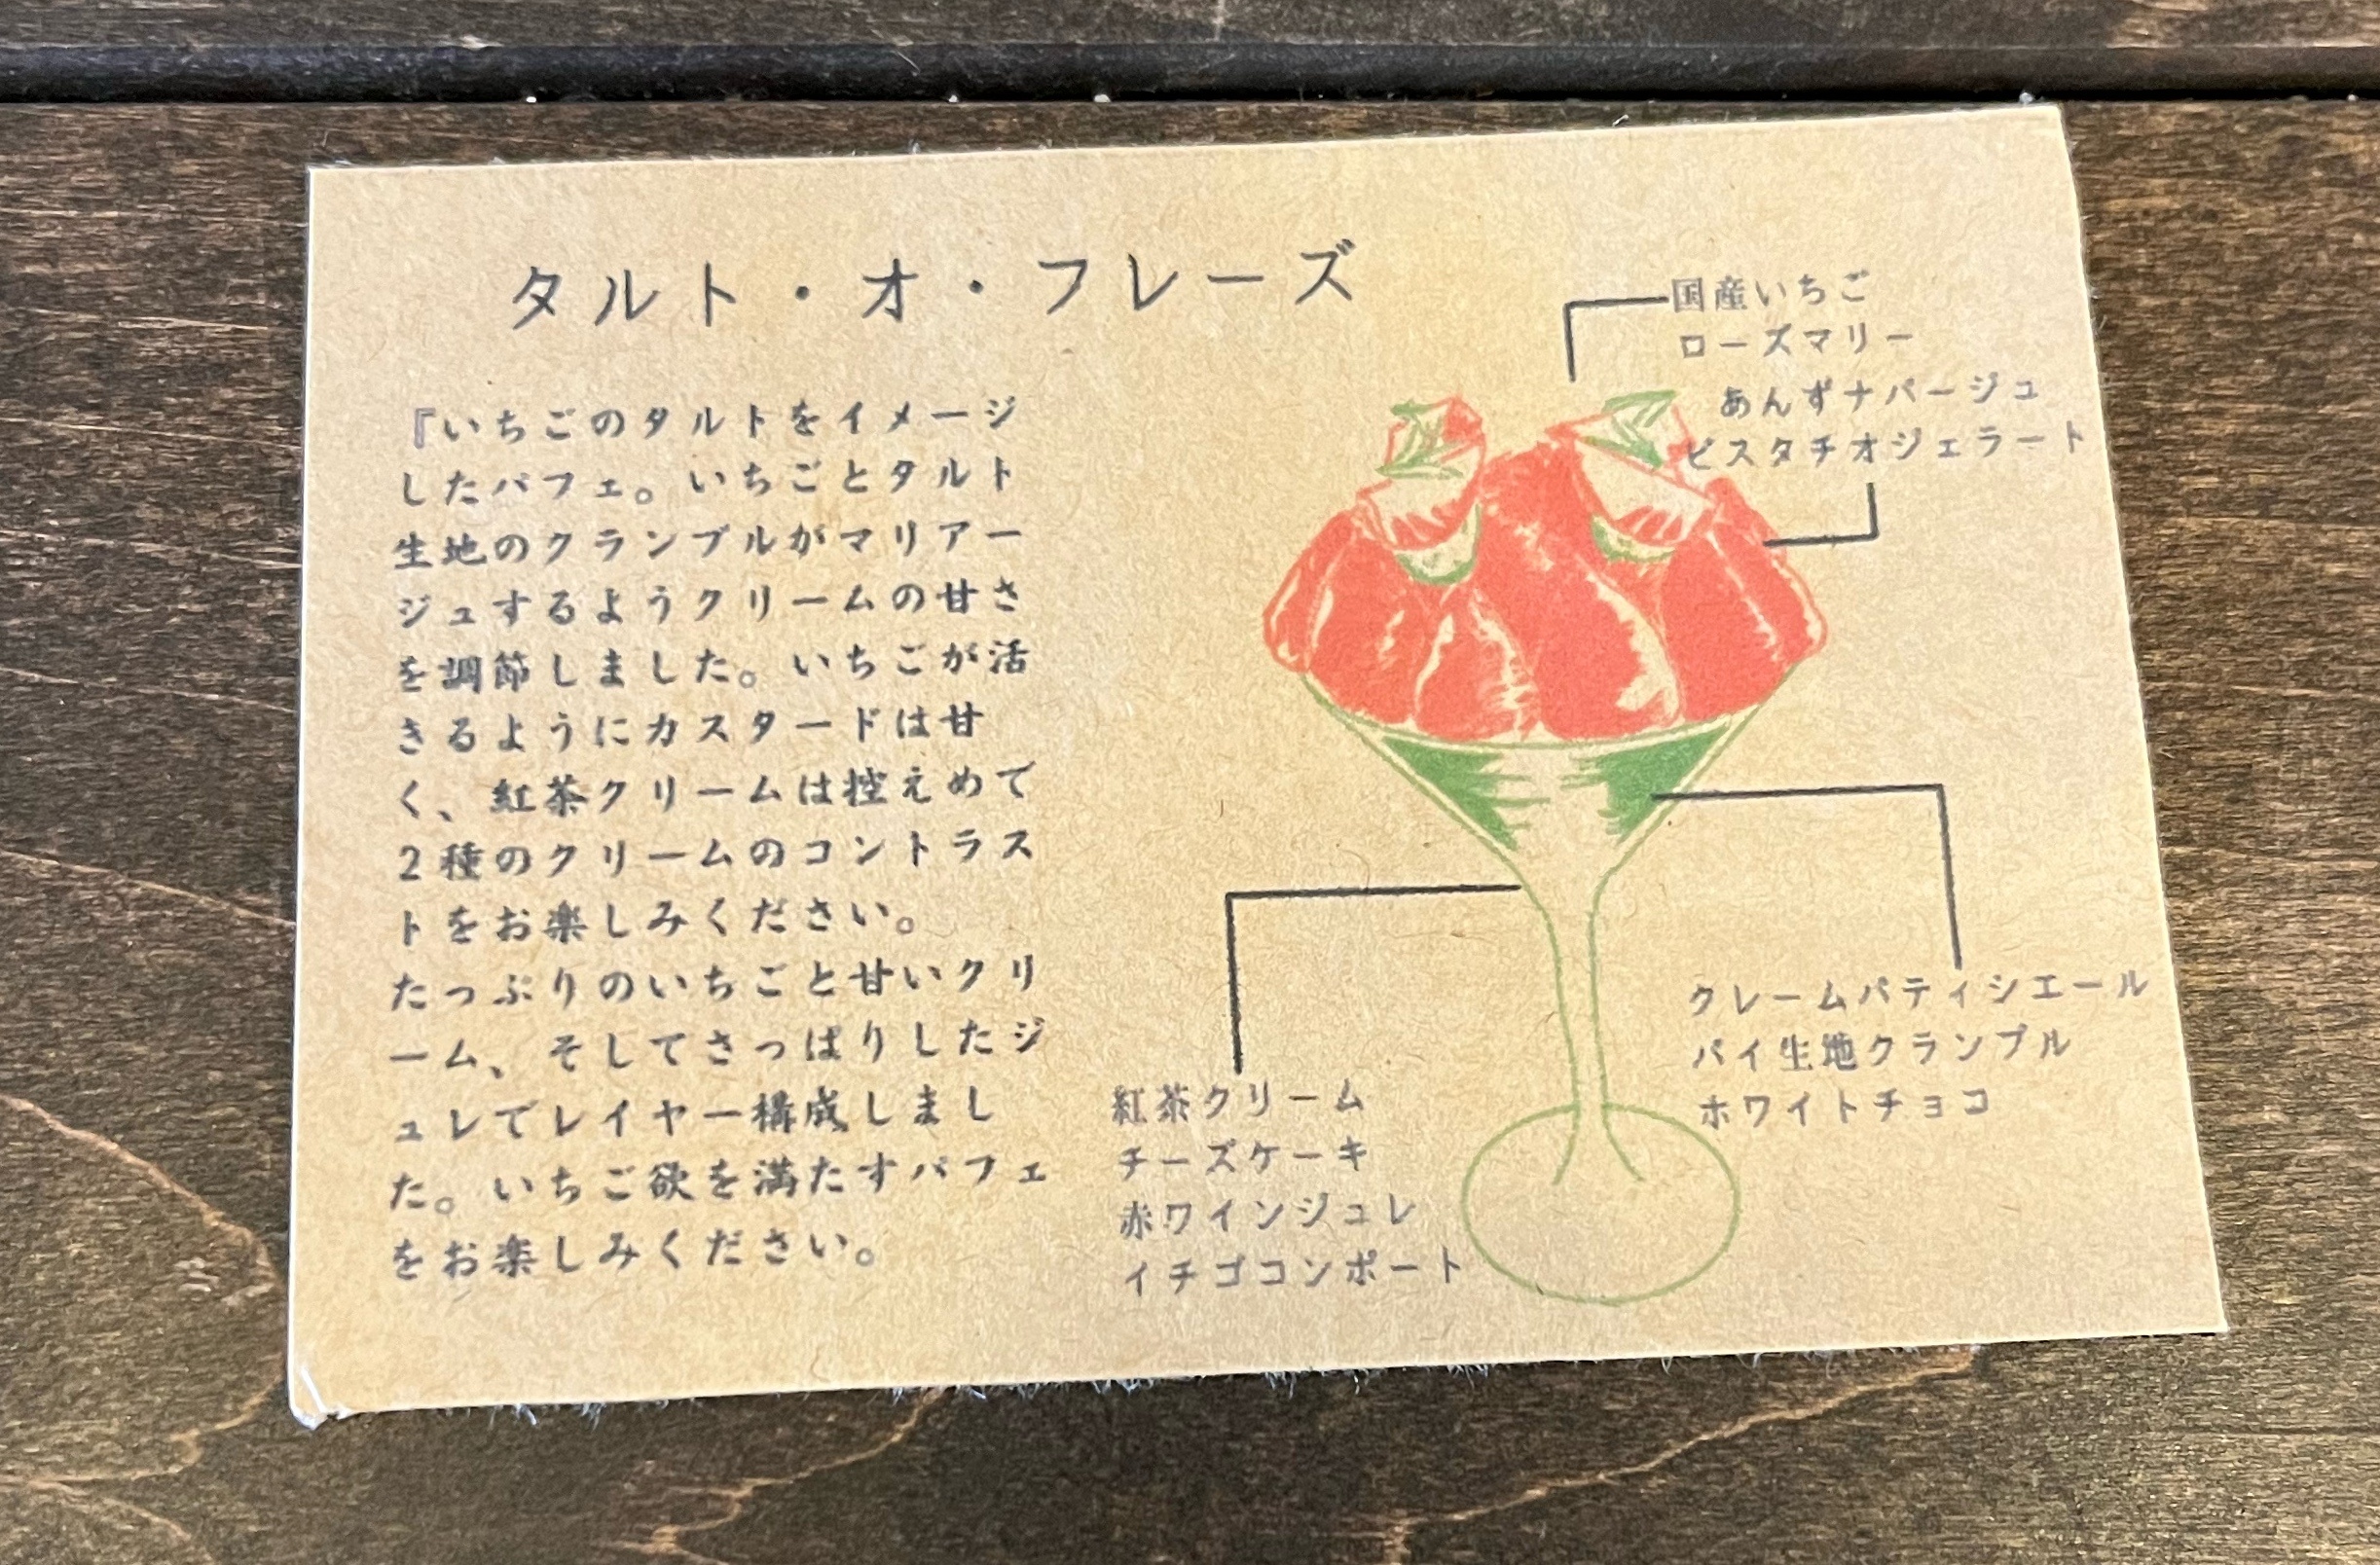 タルト・オ・フレーズ
『いちごのタルトをイメージ
したパフェ。いちごとタルト
生地のクランブルがマリアー
ジュするようクリームの甘さ
を調節しました。いちごが活
きるようにカスタードは甘
く、紅茶クリームは控えめで
2種のクリームのコントラス
トをお楽しみください。
たっぷりのいちごと甘いクリ
ーム、そしてさっぱりしたジ
ュレでレイヤー構成しまし
た。いちご欲を満たすパフェ
をお楽しみください。
国産いちご
ローズマリー
あんずナパージュ
ピスタチオジェラート
クレームパティシエール
パイ生地クランブル
ホワイトチョコ
紅茶クリーム
チーズケーキ
赤ワインジュレ
イチゴコンポート